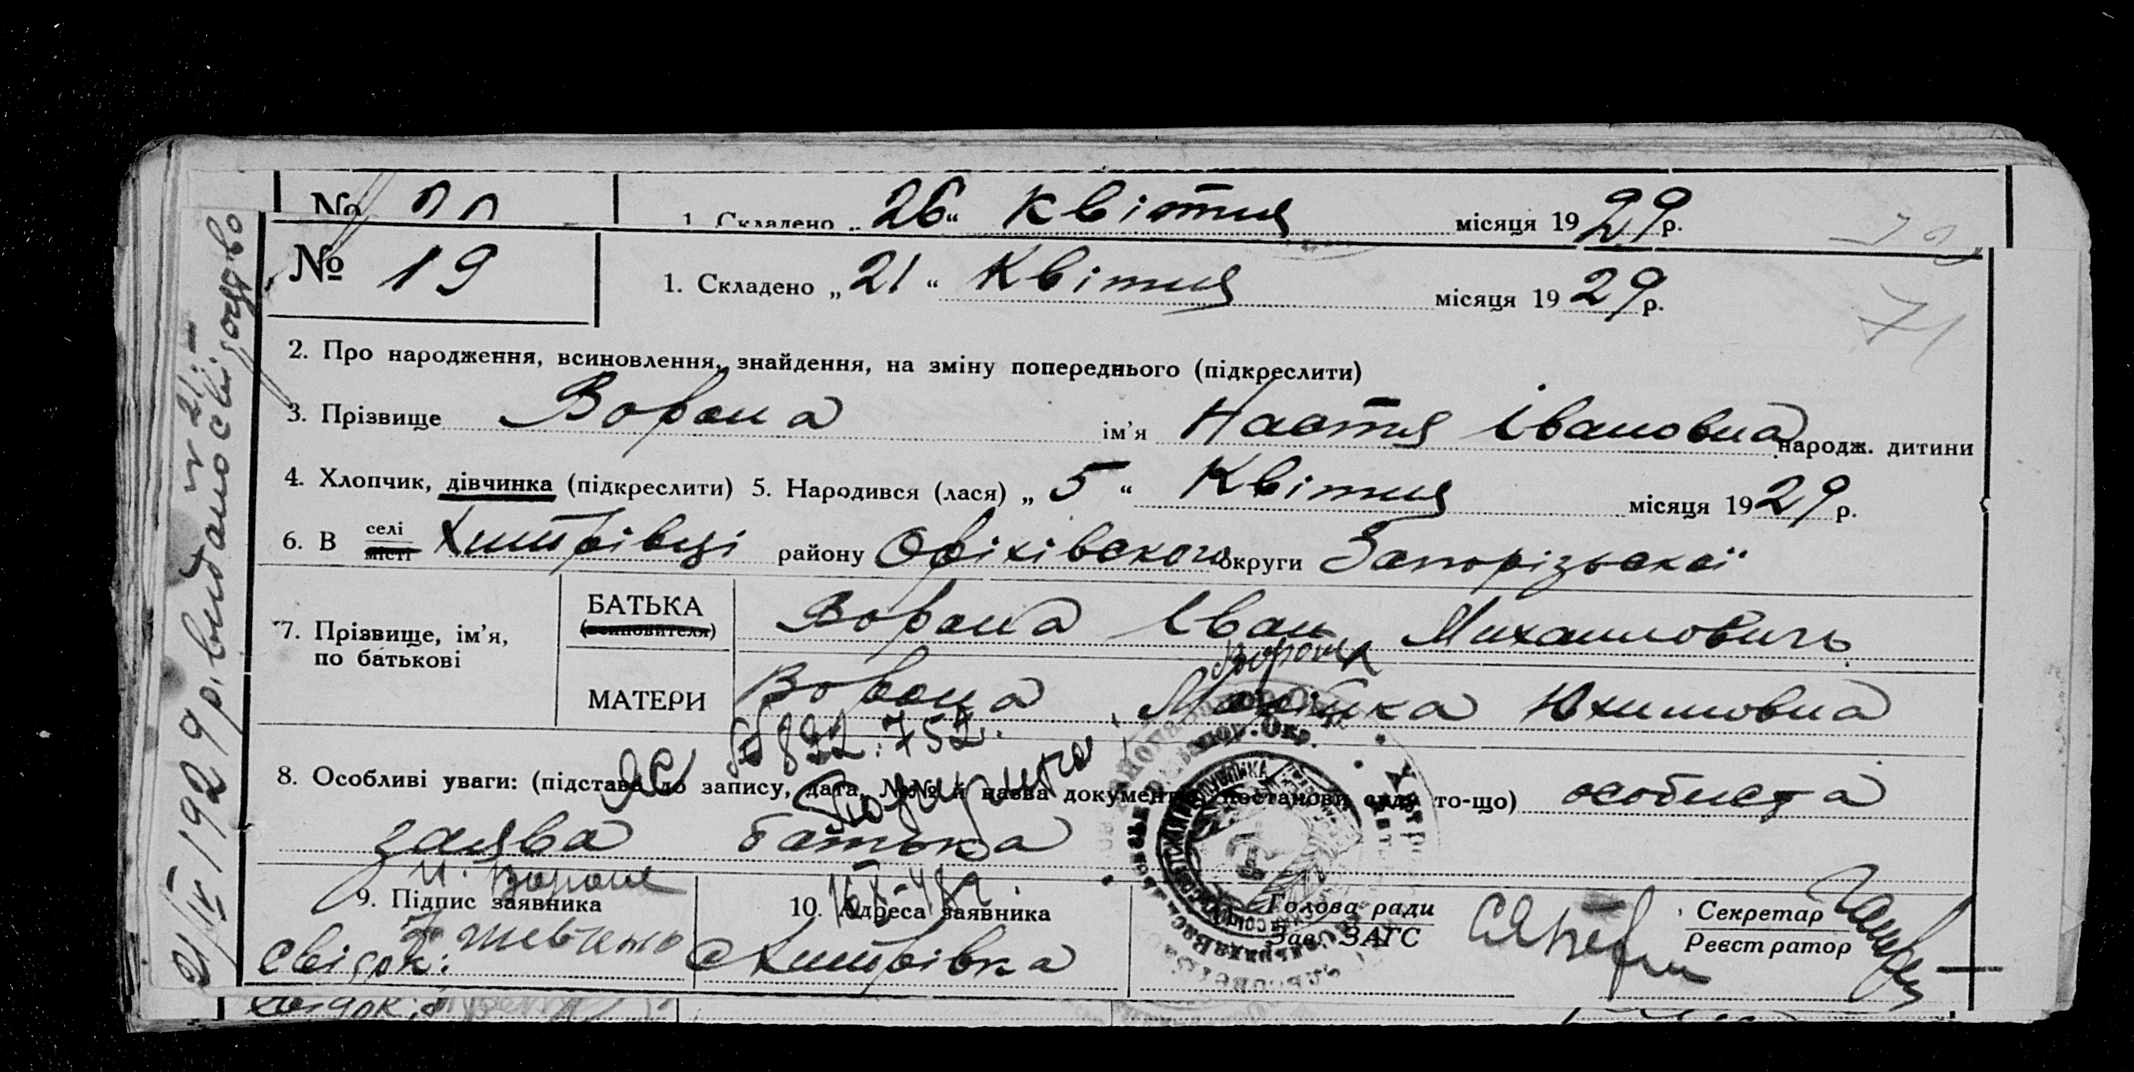 1. Складено „ 26 “ Квітня місяця 1929 р.
№ 19
1. Складено „ 21 “ Квітня місяця 1929 р.
71
2. Про народження, всиновлення, знайдення, на зміну попереднього (підкреслити)
3. Прізвище Ворона ім'я Настя Івановна народж. дитини
4. Хлопчик, дівчинка (підкреслити) 5. Народився (лася) „ 5 “ Квітня місяця 1929 р.
6. В селі місті Хитрівці району Оріхівского округи Запорізьскої
7. Прізвище, ім'я, по батькові
БАТЬКА (всиновителя) Ворона Іван Михаиловичь
Ворона
МАТЕРИ Ворона Марійка Юхимовна
822.752.
8. Особливі уваги: (підстава до запису, дата, №№ й назва документів, постанови суду то-що) особиста
заява батька
И. Вороне
9. Підпис заявника
свідок:
10. Адреса заявника
с Хитрівка
Голова ради
Зав. ЗАГС
Секретар
Реєстратор
21/IV 1929 р. видано свідоцтво
№ 21